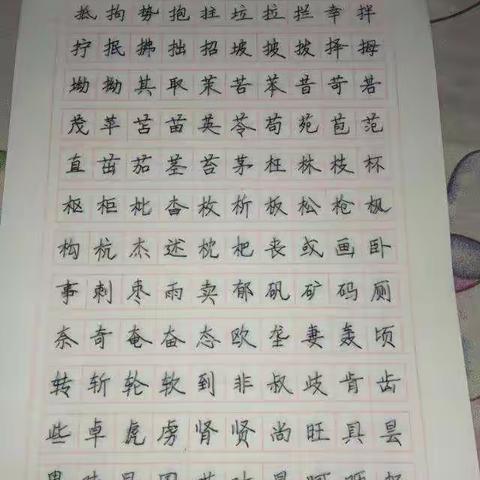 抵 拘 势 抱 拄 垃 拉 拦 幸 拌
拧 抿 拂 拙 招 坡 披 拨 择 拇
坳 拗 其 取 茉 苦 苯 昔 苛 若
茂 苹 苫 苗 英 苓 苟 苑 苞 范
直 茁 茄 茎 苔 茅 枉 林 枝 杯
枢 柜 枇 杳 枚 析 板 松 枪 枫
构 杭 杰 述 枕 杷 丧 或 画 卧
事 刺 枣 雨 卖 郁 矾 矿 码 厕
奈 奇 奄 奋 态 欧 垄 妻 轰 顷
转 斩 轮 软 到 非 叔 歧 肯 齿
些 卓 虎 虏 肾 贤 尚 旺 具 昙